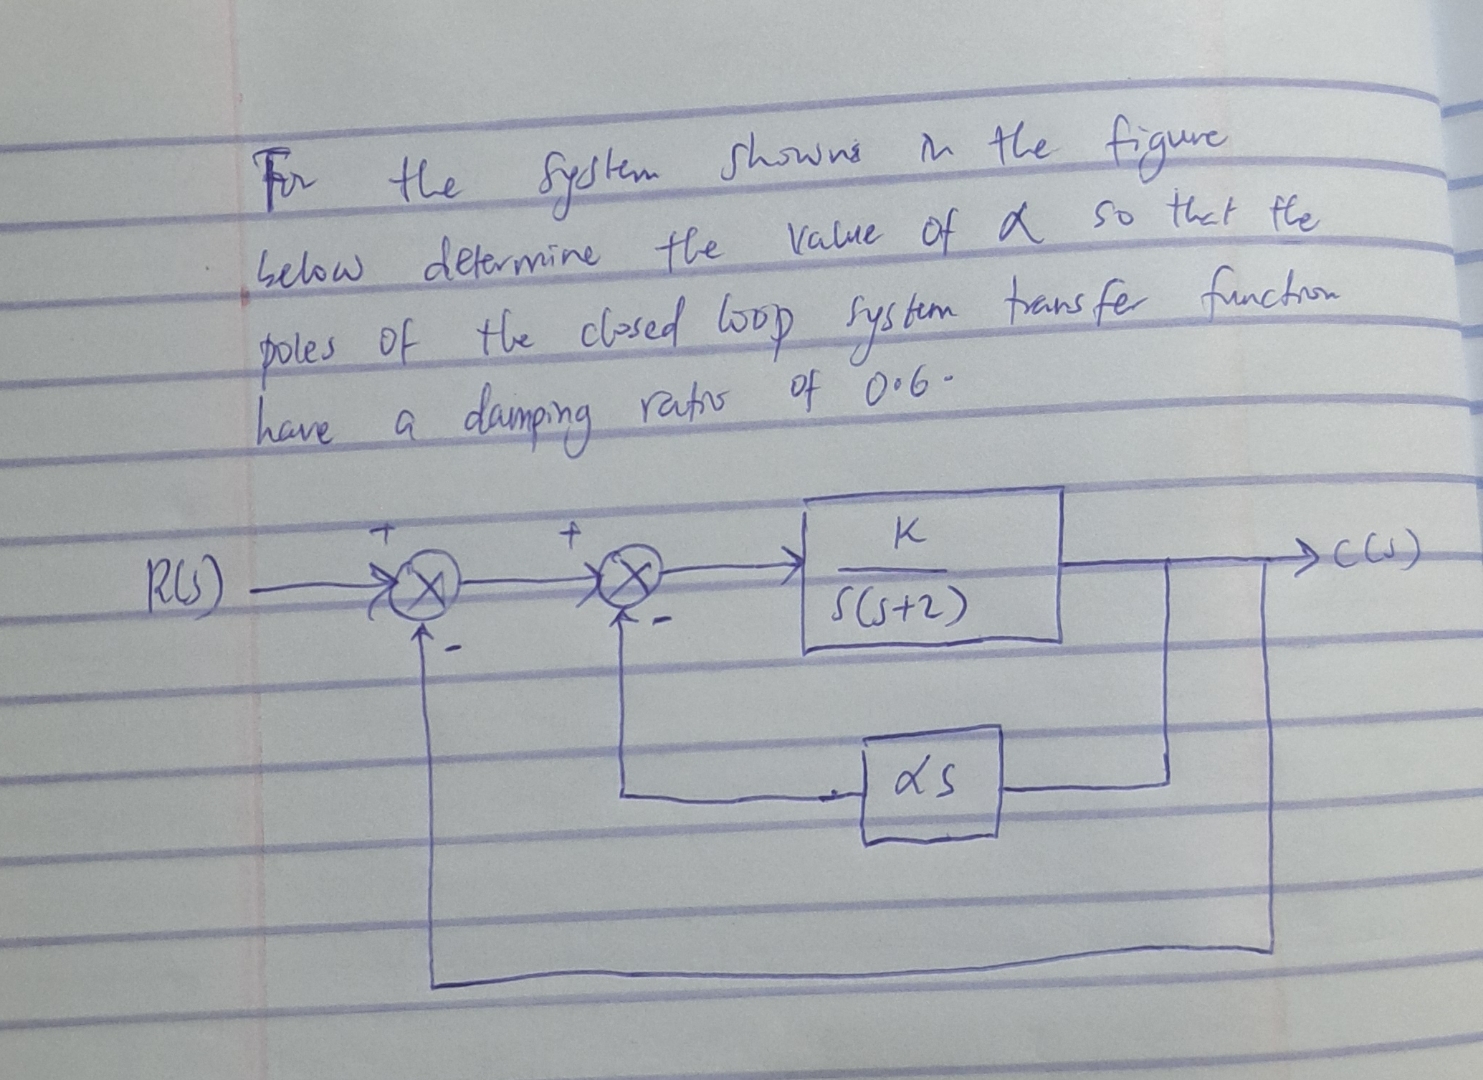 For the system shown in the figure
below determine the value of α so that the
poles of the closed loop system transfer function
have a damping ratio of 0.6.
+ +
R(s) K C(s)
s(s+2)
- -
αs